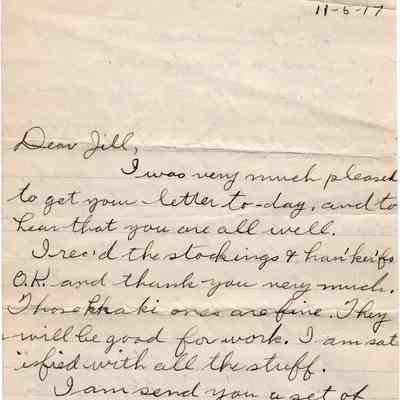 11-6-17
Dear Jill,
I was very much pleased
to get your letter to-day, and to
hear that you are all well.
I rec'd the stockings & han'ke'fs
O.K. and thank you very much.
Those khaki ones are fine. They
will be good for work. I am sat
isfied with all the stuff.
I am send you a set of